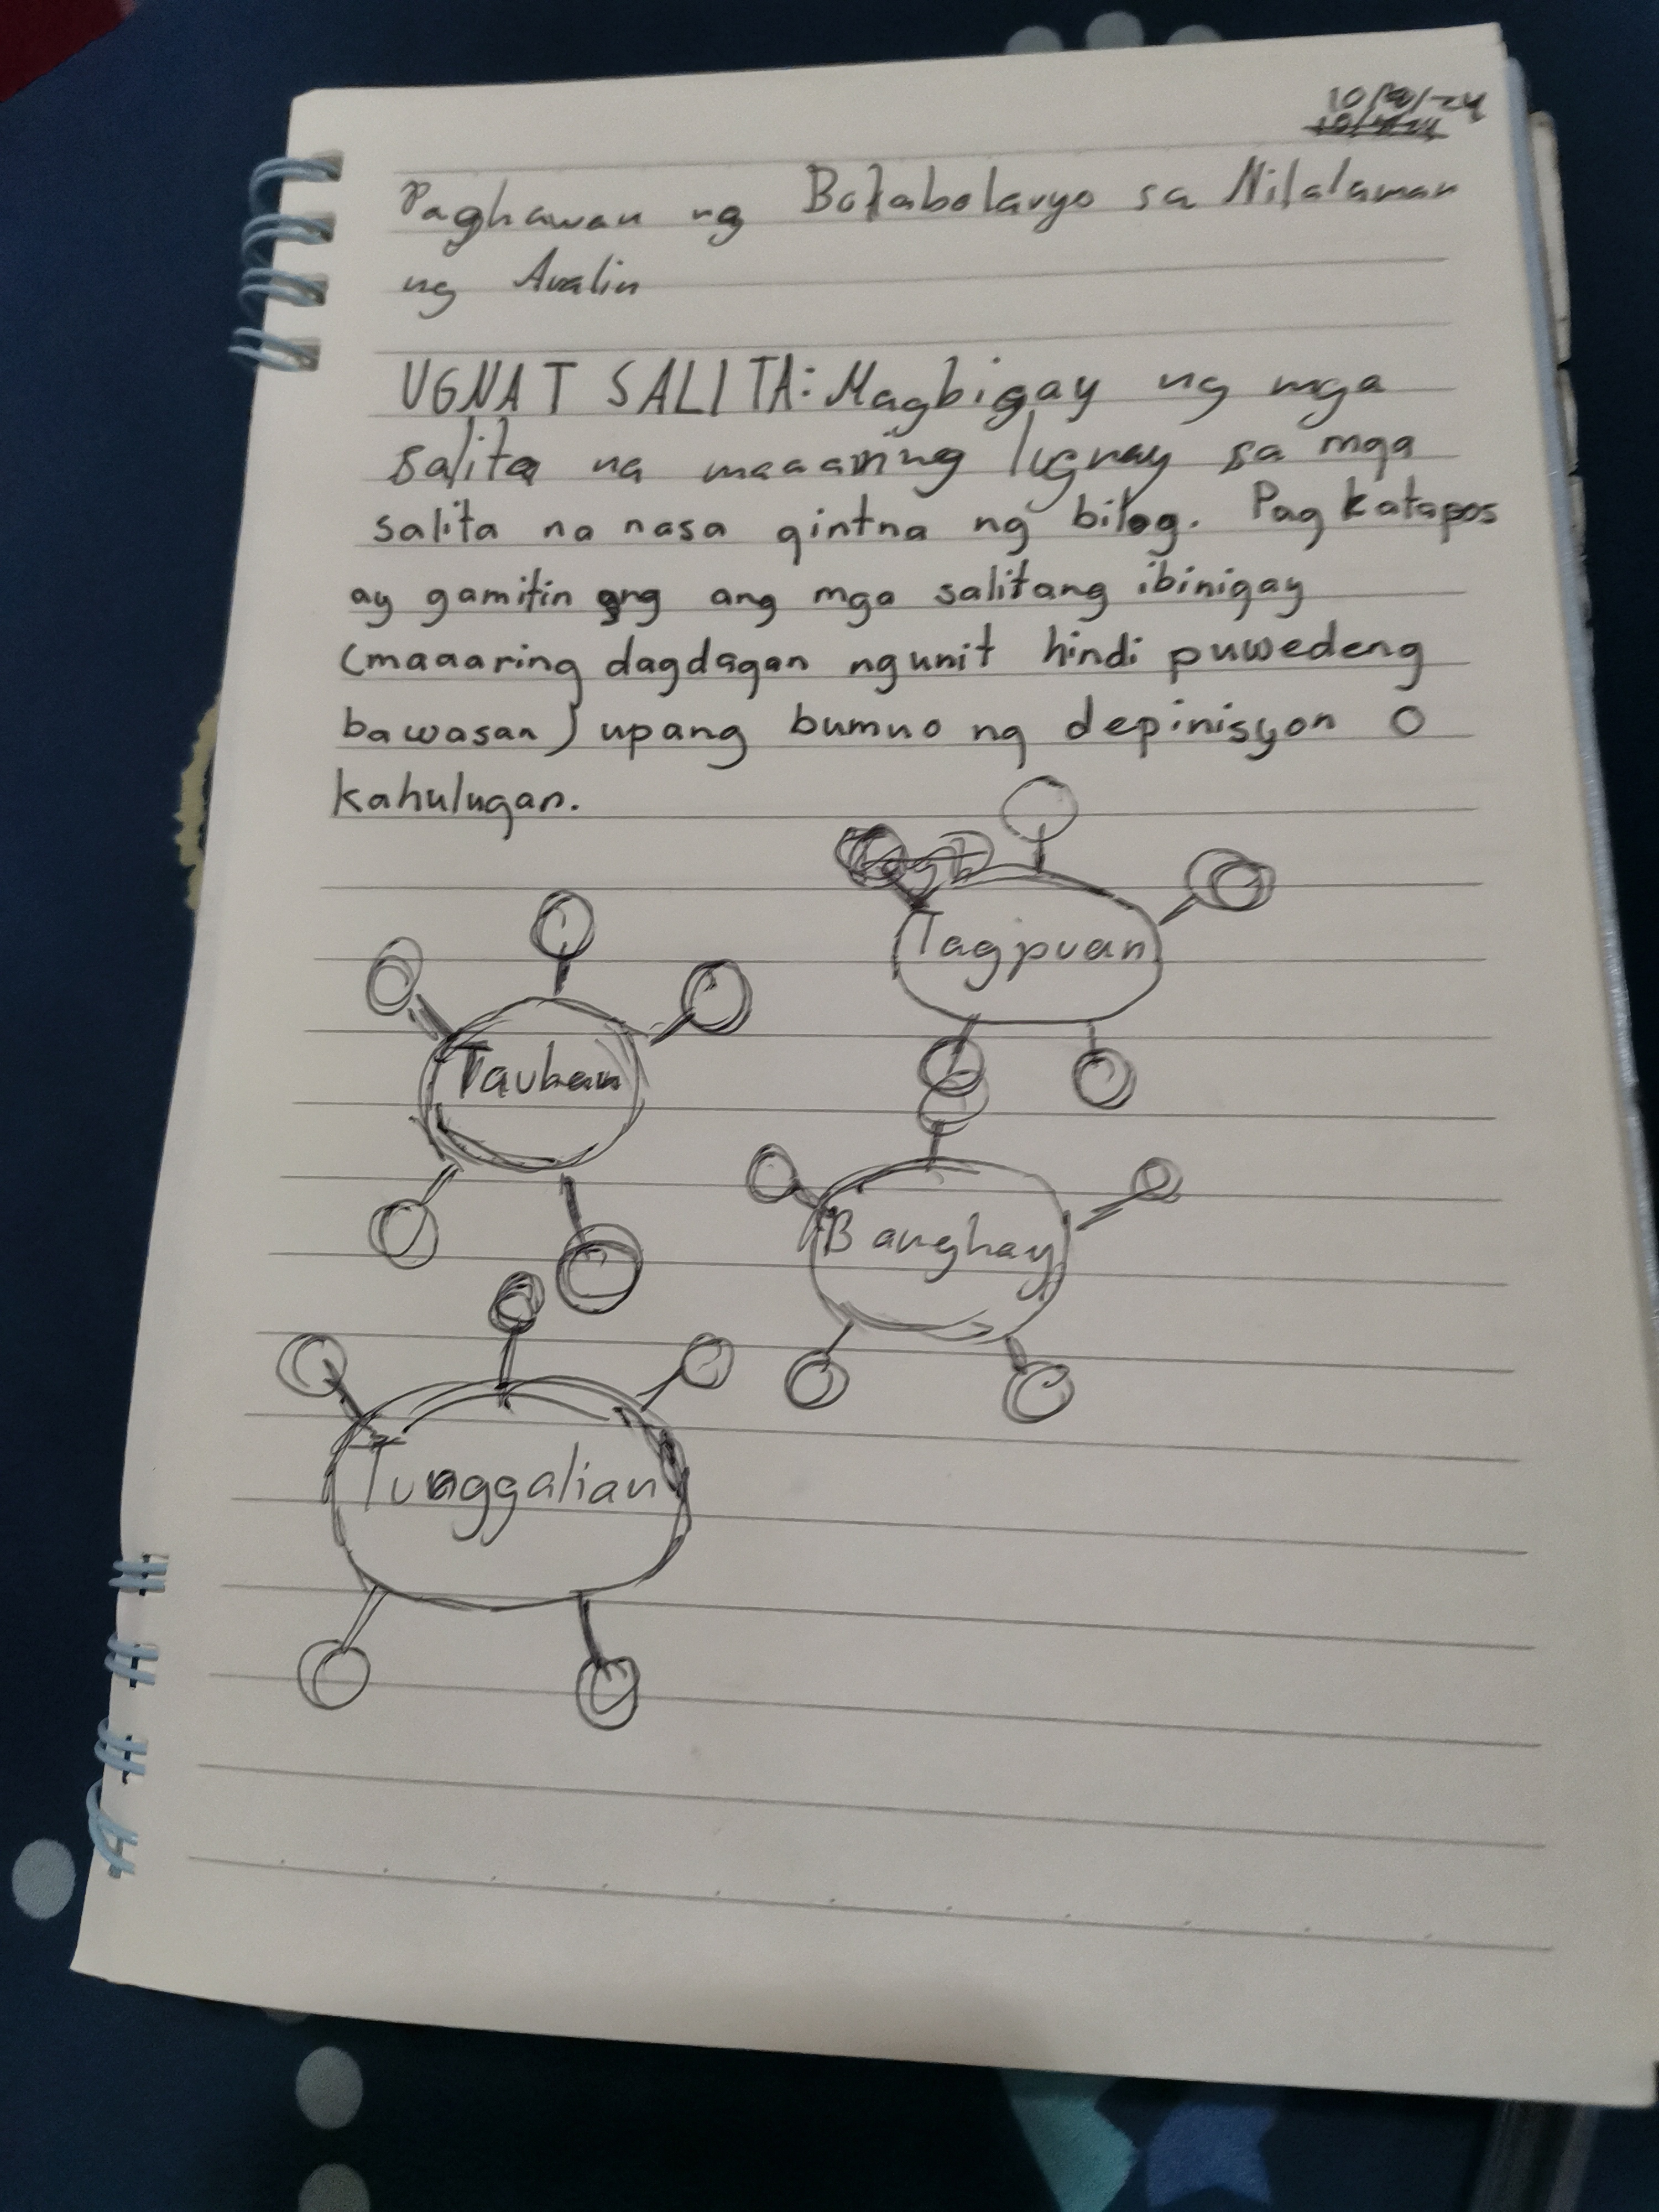 10/8/24
Paghawan ng Bokabolaryo sa Nilalaman
ng Aralin
UGNAT SALITA: Magbigay ng mga
salita na maaaring Iugnay sa mga
salita na nasa gintna ng bilog. Pagkatapos
ay gamitin ang mga salitang ibinigay
(maaaring dagdagan ngunit hindi puwedeng
bawasan) upang bumuo ng depinisyon o
kahulugan.
Tagpuan
Tauhan
Banghay
Tunggalian